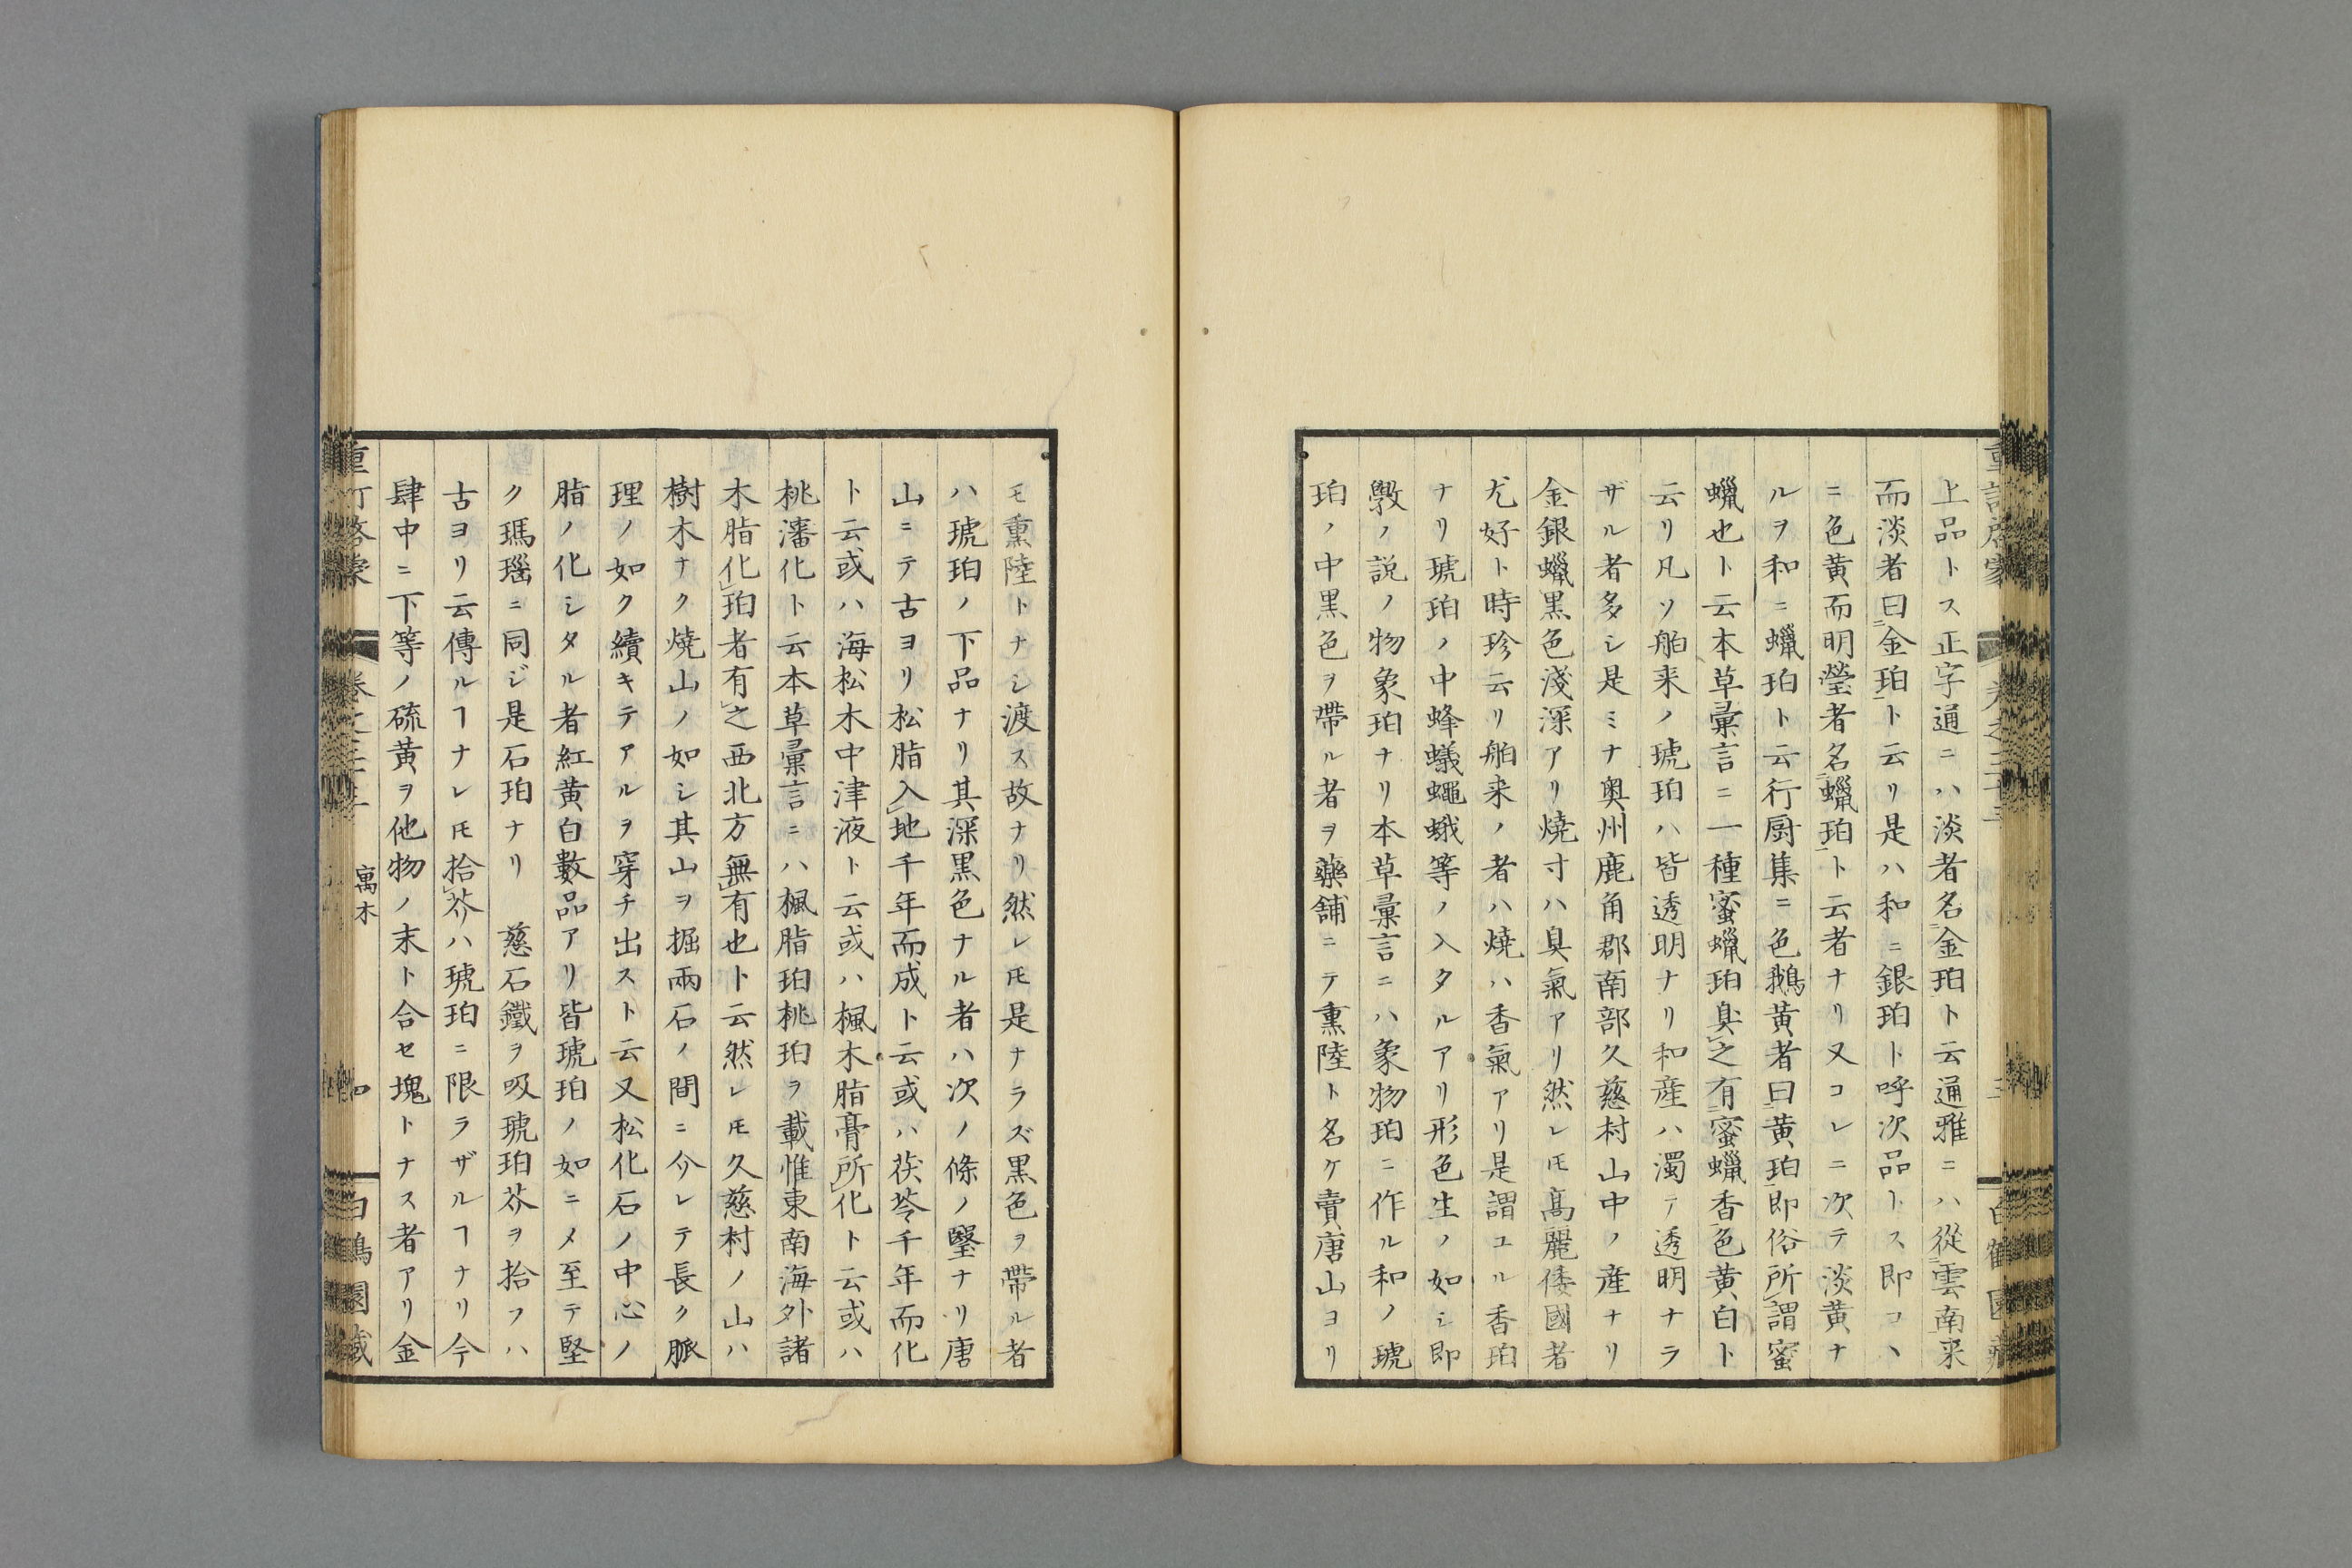 上品トス正字通ニハ淡者名金珀ト云通雅ニハ從雲南来
而淡者曰金珀ト云リ是ハ和ニ銀珀ト呼次品トス即コヽ
ニ色黄而明瑩者名蠟珀ト云者ナリ又コレニ次テ淡黄ナ
ルヲ和ニ蠟珀ト云行厨集ニ色鵝黄者曰黄珀即俗所謂蜜
蠟也ト云本草彙言ニ一種蜜蠟珀臭之有蜜蠟香色黄白ト
云リ凡ソ舶来ノ琥珀ハ皆透明ナリ和産ハ濁テ透明ナラ
ザル者多シ是ミナ奥州鹿角郡南部久慈村山中ノ産ナリ
金銀蠟黒色淺深アリ焼寸ハ臭氣アリ然レ𪜈高麗倭國者
尤好ト時珍云リ舶来ノ者ハ焼ハ香氣アリ是謂ユル香珀
ナリ琥珀ノ中蜂蟻蠅蛾等ノ入タルアリ形色生ノ如シ即
斅ノ説ノ物象珀ナリ本草彙言ニハ象物珀ニ作ル和ノ琥
珀ノ中黒色ヲ帶ル者ヲ藥舗ニテ熏陸ト名ケ賣唐山ヨリ
モ熏陸トナシ渡ス故ナリ然レ𪜈是ナラズ黒色ヲ帶ル者
ハ琥珀ノ下品ナリ其深黒色ナル者ハ次ノ條ノ瑿ナリ唐
山ニテ古ヨリ松脂入地千年而成ト云或ハ茯苓千年而化
ト云或ハ海松木中津液ト云或ハ楓木脂膏所化ト云或ハ
桃瀋化ト云本草彙言ニハ楓脂珀桃珀ヲ載惟東南海外諸
木脂化珀者有之西北方無有也ト云然レ𪜈久慈村ノ山ハ
樹木ナク焼山ノ如シ其山ヲ掘兩石ノ間ニ介レテ長ク脈
理ノ如ク續キテアルヲ穿チ出スト云又松化石ノ中心ノ
脂ノ化シタル者紅黄白數品アリ皆琥珀ノ如ニ〆至テ堅
ク瑪瑙ニ同ジ是石珀ナリ　慈石鐵ヲ吸琥珀芥ヲ拾フハ
古ヨリ云傳ルヿナレ𪜈拾芥ハ琥珀ニ限ラザルヿナリ今
肆中ニ下等ノ硫黄ヲ他物ノ末ト合セ塊トナス者アリ金
寓木